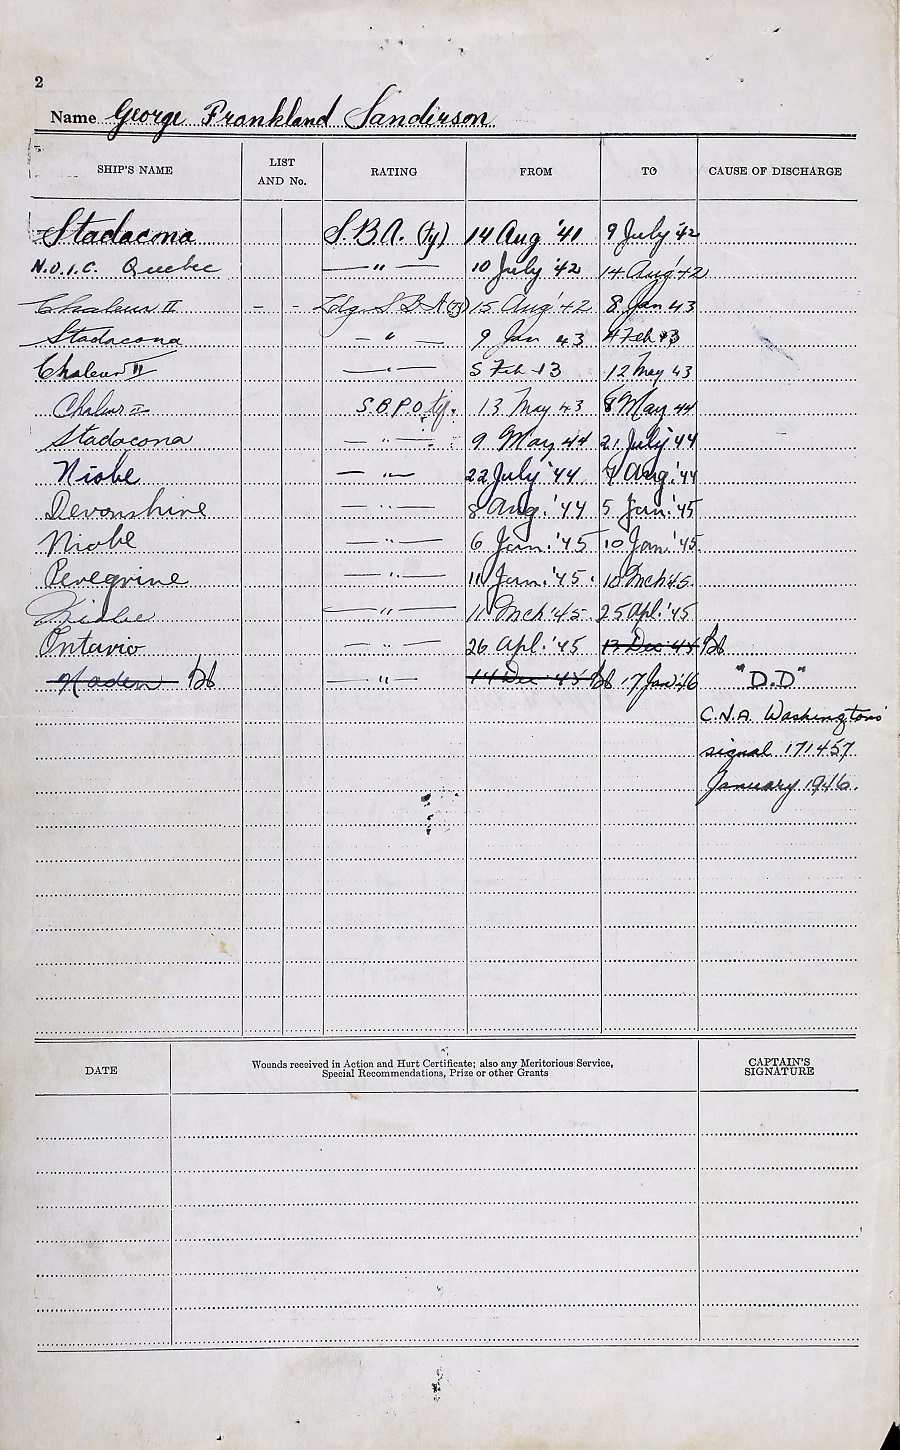 2
Name George Frankland Sanderson
SHIP'S NAME LIST AND No. RATING FROM TO CAUSE OF DISCHARGE
Stadacona S.B.A. (Ty) 14 Aug '41 9 July '42
N.O.I.C. Quebec — " — 10 July '42 14 Aug '42
Chaleur II - - Ldg. S.B.A (Ty) 15 Aug '42 8 Jan 43
Stadacona — " — 9 Jan 43 4 Feb 43
Chaleur II — " — 5 Feb 43 12 May 43
Chaleur II S.B.P.O. ty. 13 May 43 8 May 44
Stadacona — " — 9 May 44 21 July '44
Niobe — " — 22 July '44 7 Aug. '44
Devonshire — " — 8 Aug. '44 5 Jan. '45
Niobe — " — 6 Jan. '45 10 Jan. '45
Peregrine — " — 11 Jan. '45. 10 Mch '45.
Niobe — " — 11 Mch '45 25 Apl. '45
Ontario — " — 26 Apl. '45 13 Dec '45
Naden — " — 14 Dec '45 17 Jan '46 "D.D"
C.N.A. Washington's
signal 171457
January 1946.
DATE Wounds received in Action and Hurt Certificate; also any Meritorious Service, CAPTAIN'S
Special Recommendations, Prize or other Grants SIGNATURE